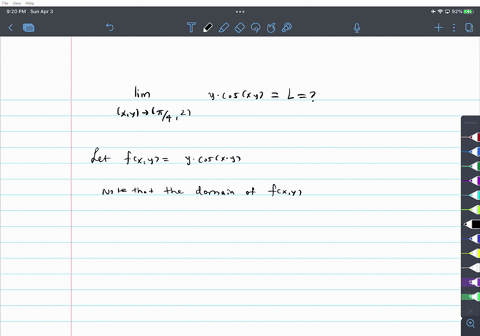 File View Help
9:20 PM Sun Apr 3
92%
T
lim y·cos(xy) = L = ?
(x,y) → (π/4, 2)
Let f(x,y) = y·cos(x·y)
Note that the domain of f(x,y)